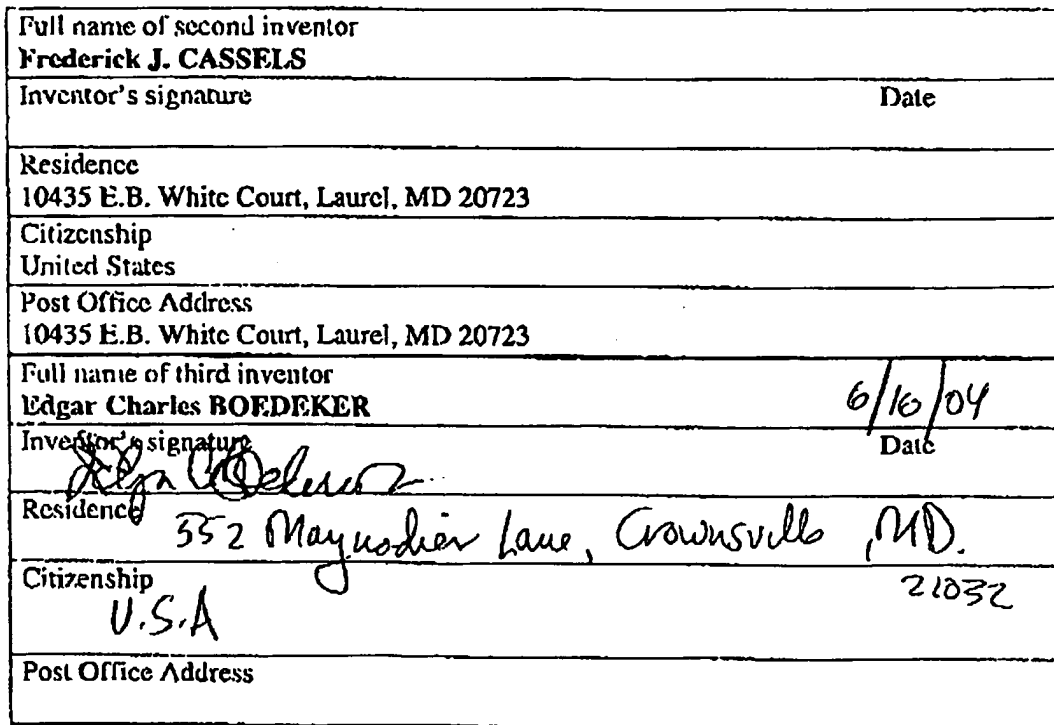 Full name of second inventor
Frederick J. CASSELS
Inventor's signature Date
Residence
10435 E.B. White Court, Laurel, MD 20723
Citizenship
United States
Post Office Address
10435 E.B. White Court, Laurel, MD 20723
Full name of third inventor
Edgar Charles BOEDEKER 6/16/04
Inventor's signature Date
Residence
352 Maynadier Lane, Crownsville, MD.
Citizenship 21032
U.S.A
Post Office Address